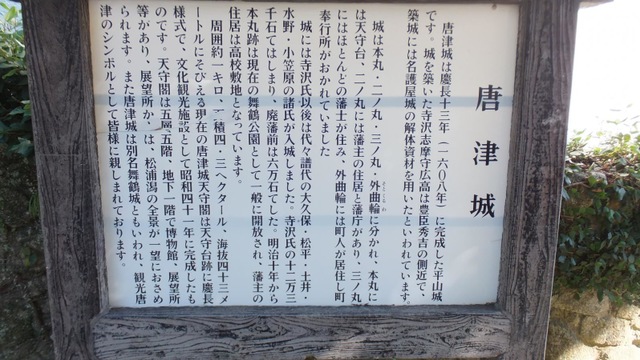 唐津城
唐津城は慶長十三年（一六〇八年）に完成した平山城
です。城を築いた寺沢志摩守広高は豊臣秀吉の側近で、
築城には名護屋城の解体資材を用いたといわれています。
城は本丸・二ノ丸・三ノ丸・外曲輪に分かれ、本丸に
は天守台、二ノ丸には藩主の住居と藩庁があり、三ノ丸
にはほとんどの藩士が住み、外曲輪には町人が居住し町
奉行所がおかれていました
城には寺沢氏以後は代々譜代の大久保・松平・土井・
水野・小笠原の諸氏が入城しました。寺沢氏の十二万三
千石てはしまり、廃藩前は六万石てした。明治十年から
本丸跡は現在の舞鶴公園として一般に開放され、藩主の
住居は高校敷地となっています。
周囲約一キロ、積四・三ヘクタール、海抜四十三メ
ートルにそびえる現在の唐津城天守閣は天守台跡に慶長
様式で、文化観光施設として昭和四十一年に完成したも
のです。天守閣は五層五階、地下一階で博物館、展望所
等があり、展望所か、は、松浦潟の全景が一望におさめ
られます。また唐津城は別名舞鶴城ともいわれ、観光唐
津のシンボルとして皆様に親しまれております。